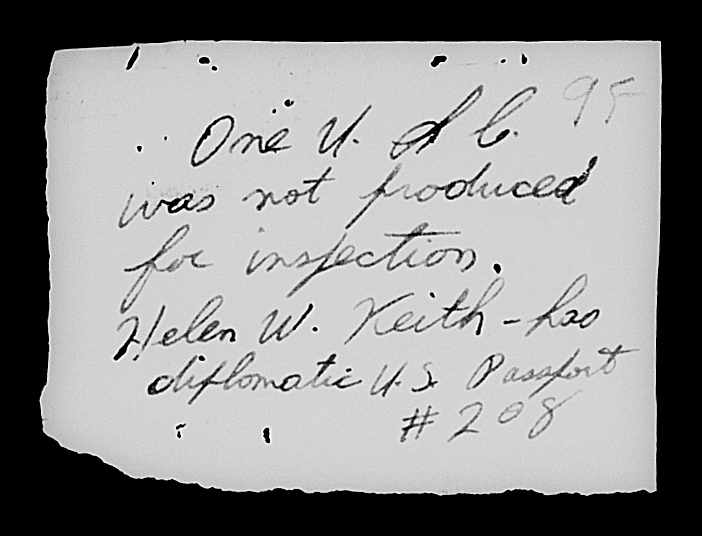 95
One U. S C.
was not produced
for inspection.
Helen W. Keith - has
diplomatic U.S. Passport
# 208